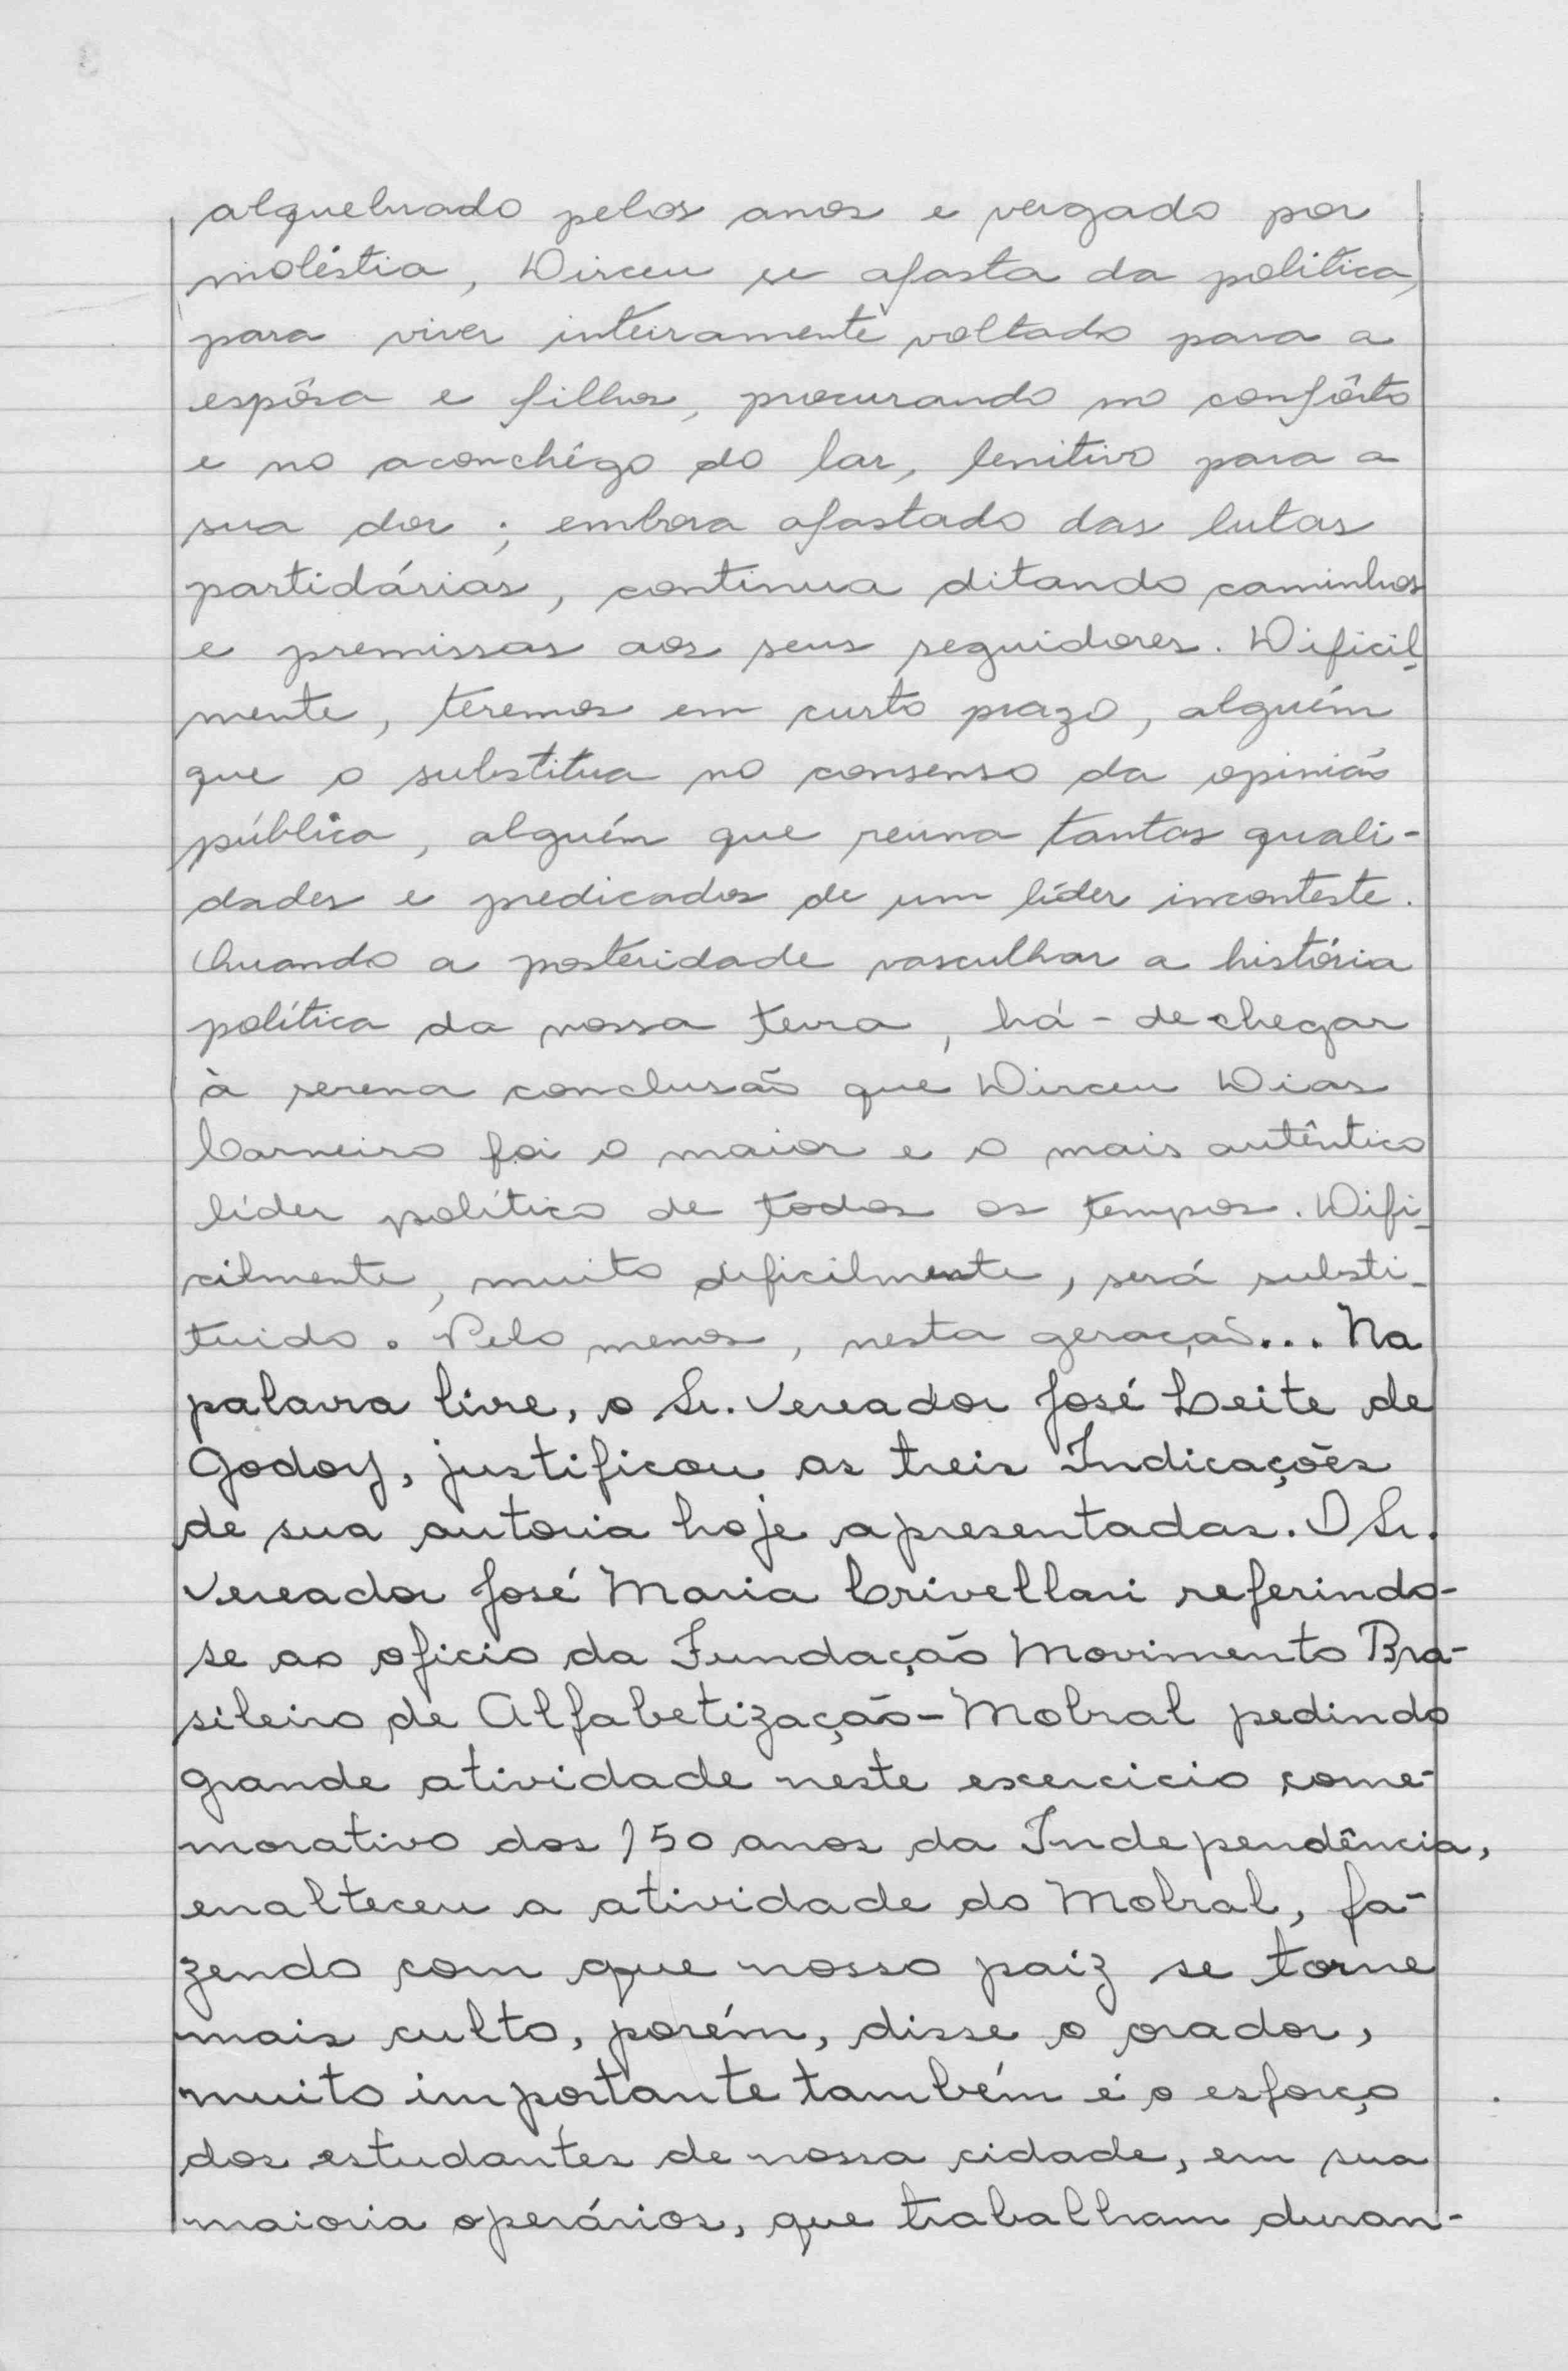 alquebrado pelos anos e vergado por
moléstia, Dirceu se afasta da politica,
para viver inteiramente voltado para a
espôsa e filhos, procurando no confôrto
e no aconchêgo do lar, lenitivo para a
sua dor ; embora afastado das lutas
partidárias, continua ditando caminhos
e premissas aos seus seguidores. Dificil-
mente, teremos em curto prazo, alguém
que o substitua no consenso da opinião
pública, alguém que reuna tantas quali-
dades e predicados de um líder inconteste.
Quando a posteridade vasculhar a história
política da nossa terra, há-de chegar
à serena conclusão que Dirceu Dias
Carneiro foi o maior e o mais autêntico
líder político de todos os tempos. Difi-
cilmente, muito dificilmente, será substi-
tuido. Pelo menos, nesta geração... Na
palavra livre, o Sr. Vereador José Leite de
Godoy, justificou as treis Indicações
de sua autoria hoje apresentadas. O Sr.
Vereador José Maria Crivellari referindo-
se ao oficio da Fundação Movimento Bra-
sileiro de Alfabetização-Mobral pedindo
grande atividade neste exercicio come-
morativo dos 150 anos da Independência,
enalteceu a atividade do Mobral, fa-
zendo com que nosso paiz se torne
mais culto, porém, disse o orador,
muito importante também é o esforço
dos estudantes de nossa cidade, em sua
maioria operários, que trabalham duran-